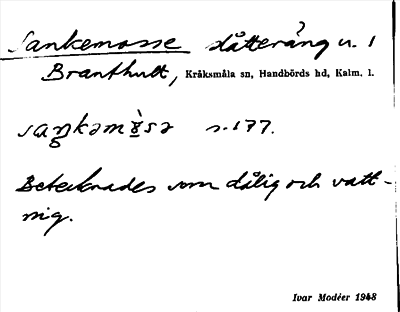 Sankemosse slåtteräng u. 1
Branthult, Kråksmåla sn, Handbörds hd, Kalm. l.
s. 177.
Betecknades som dålig och vatt-
nig.
Ivar Modéer 1948